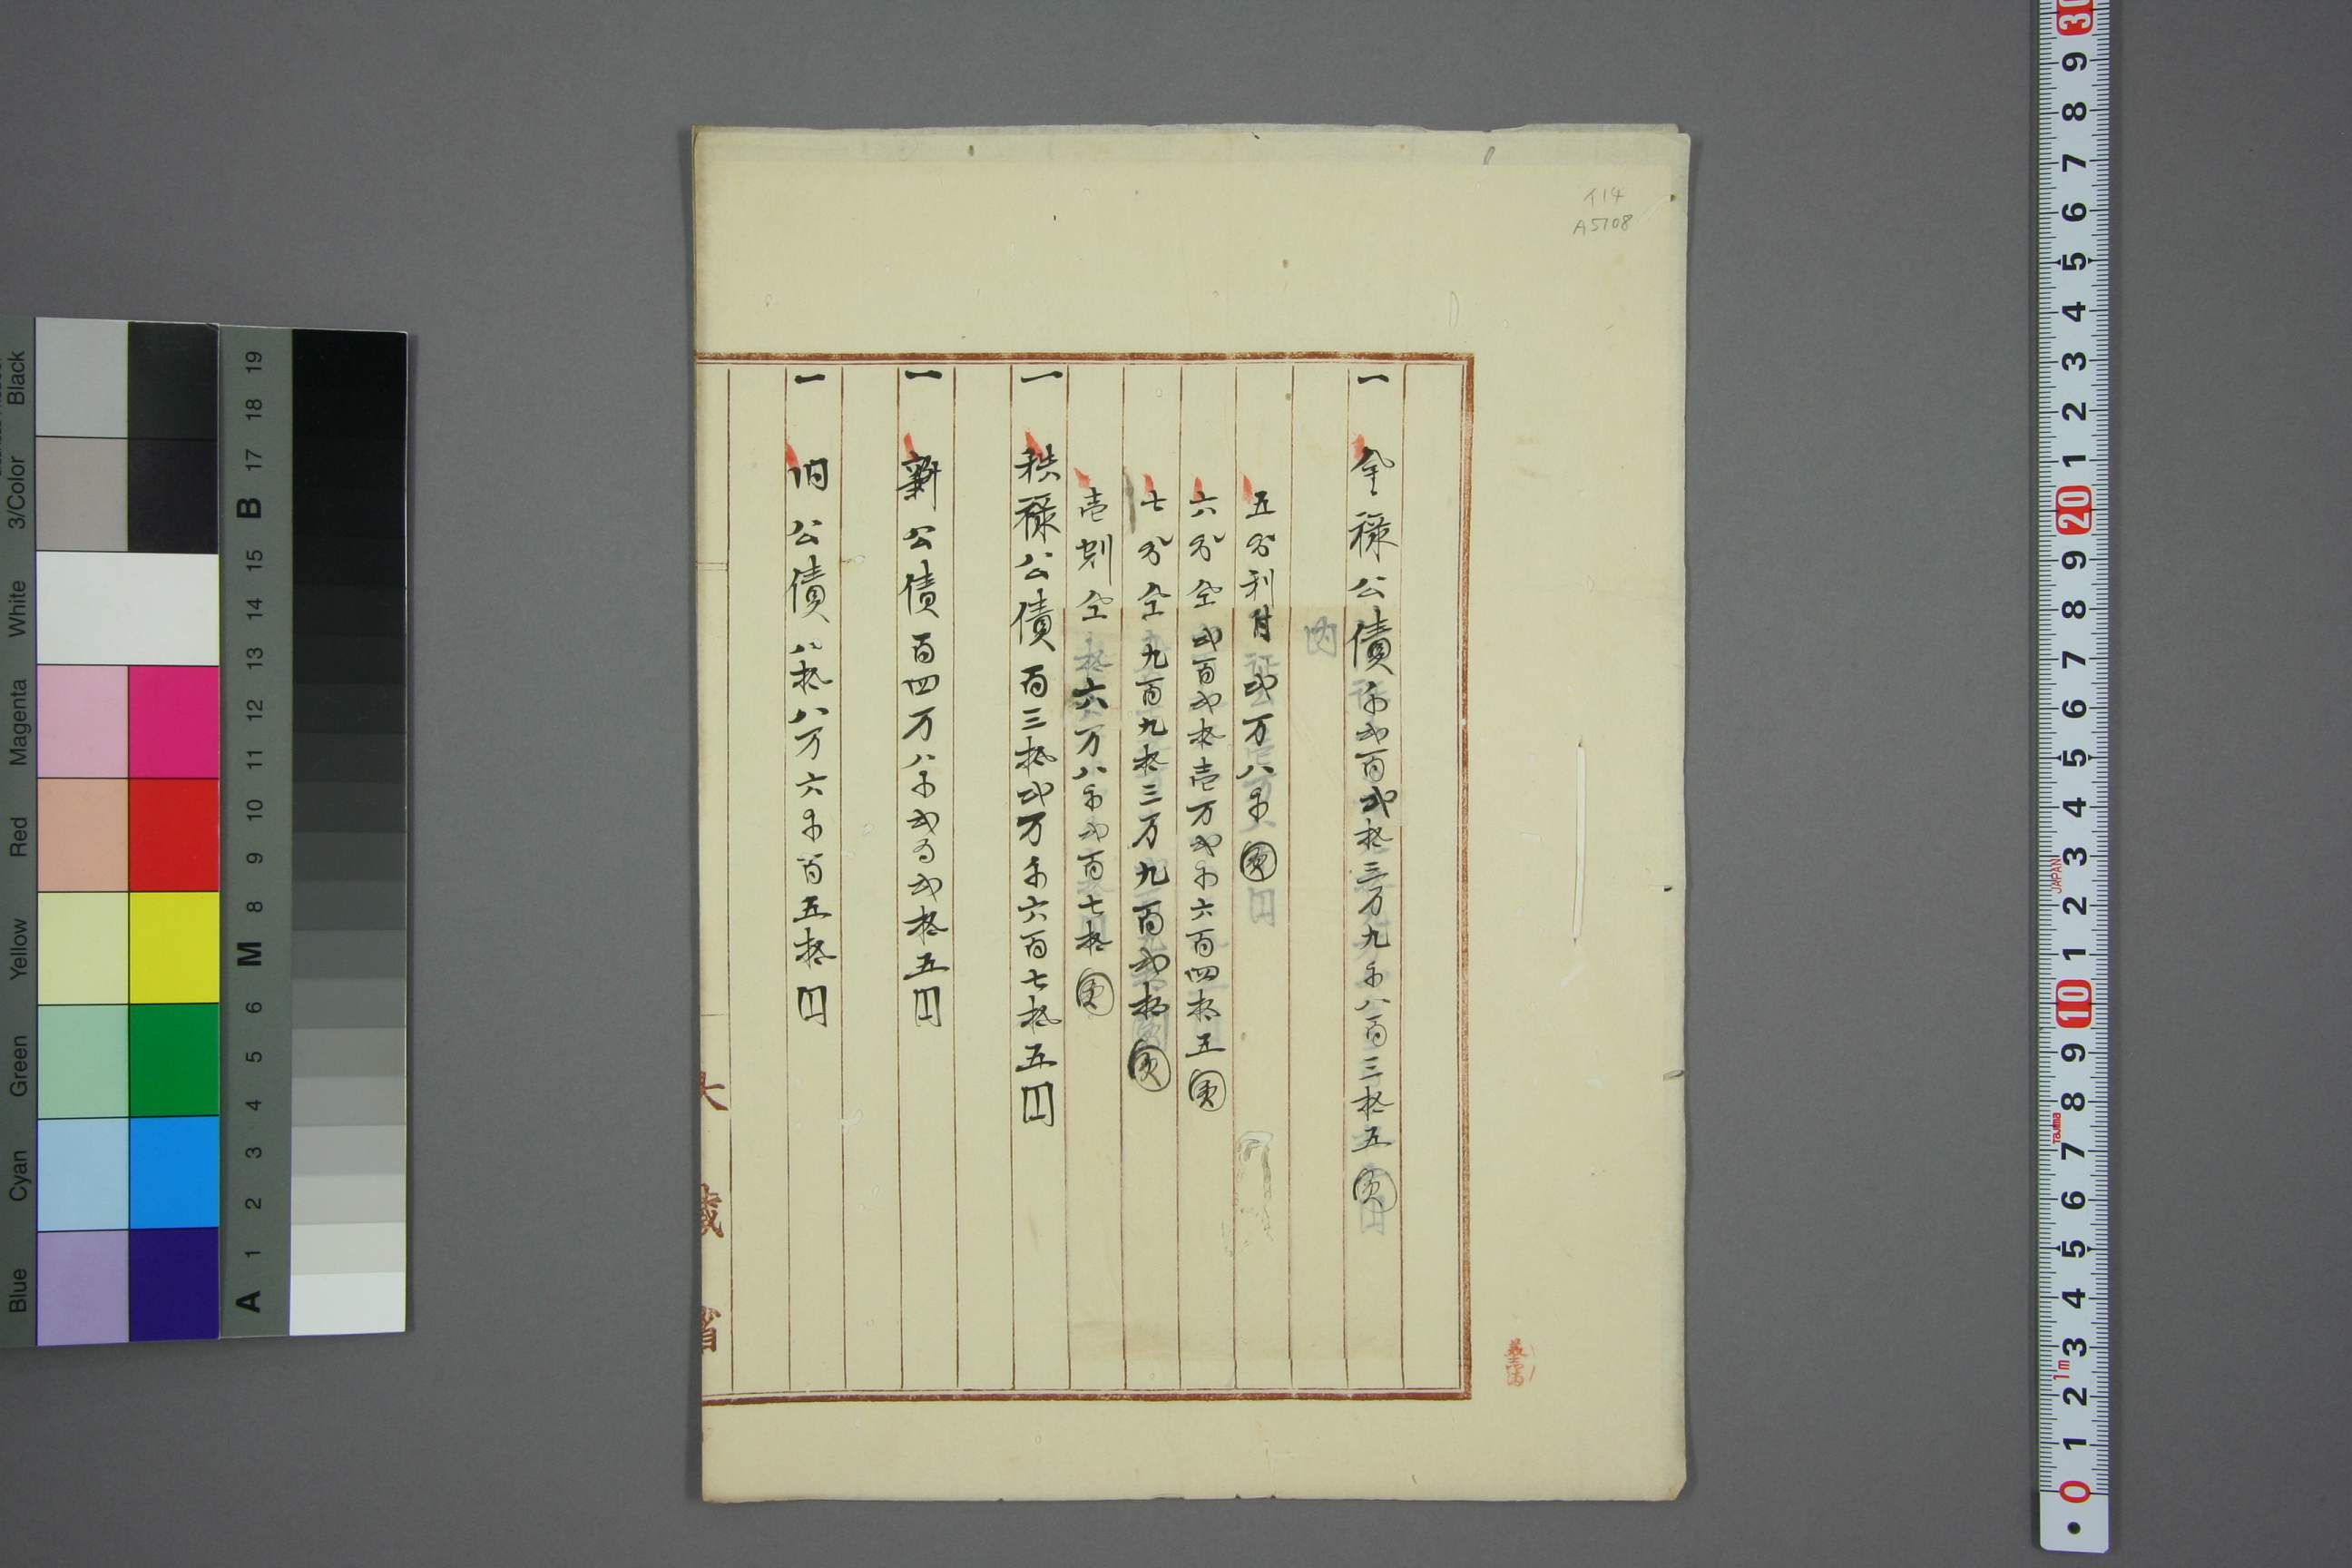 イ14
A5708
一 金禄公債千弐百弐拾三万九千八百三拾五圓
内
五分利付弐万八千圓
六分仝弐百弐拾壱万弐千六百四拾五圓
七分仝九百九拾三万九百弐拾圓
壱割仝六万八千弐百七拾圓
一 秩禄公債百三拾弐万千六百七拾五円
一 新公債百四万八千弐百弐拾五円
一 旧公債八拾八万六千百五拾円
大蔵省
Blue Cyan Green Yellow Red Magenta White 3/Color Black
A 1 2 3 4 5 6 M 8 9 10 11 12 13 14 15 B 17 18 19
0 1 2 3 4 5 6 7 8 9 10 1 2 3 4 5 6 7 8 9 20 1 2 3 4 5 6 7 8 9 30
1m
Tajima
JAPAN